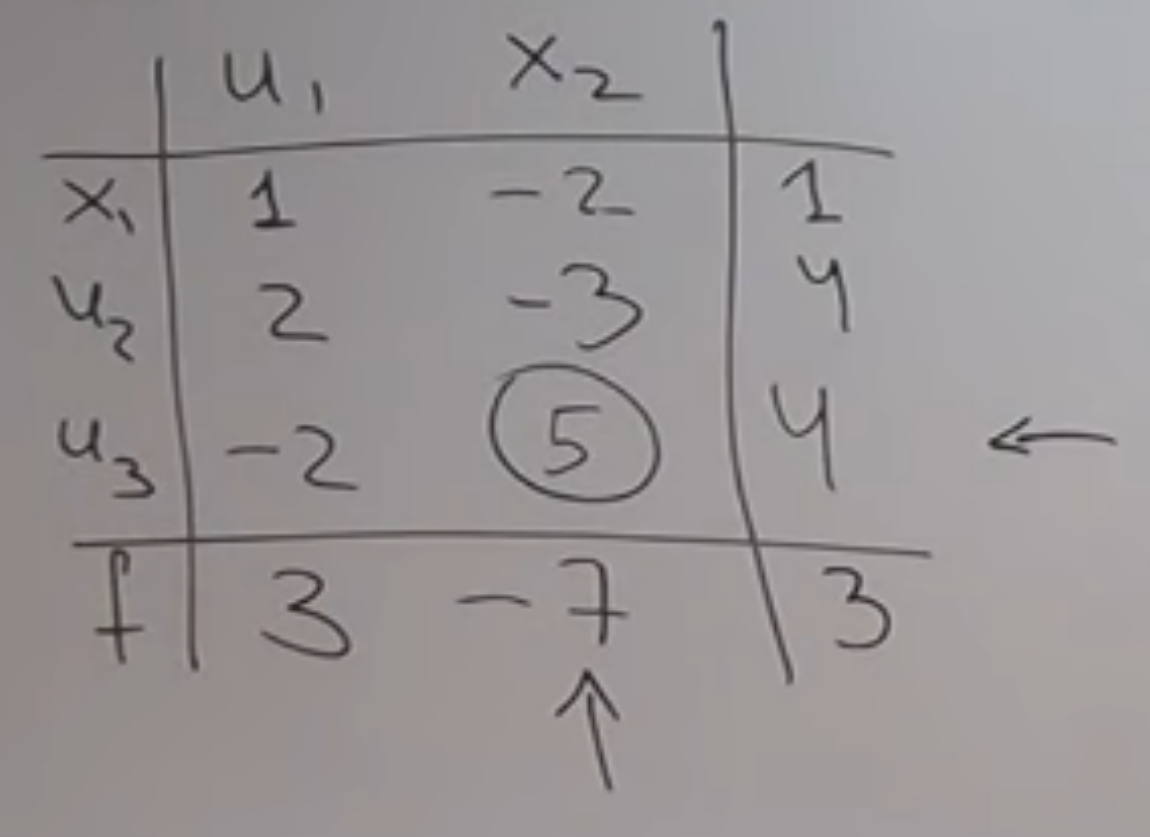 u₁ x₂
x₁ 1 -2 1
u₂ 2 -3 4
u₃ -2 5 4 ←
f 3 -7 3
↑